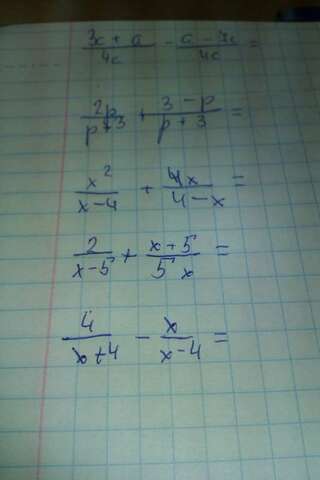 3c + a / 4c - a - 7c / 4c =
2p / p+3 + 3 - p / p + 3 =
x² / x-4 + 4x / 4-x =
2 / x-5 + x+5 / 5 x =
4 / x+4 - x / x-4 =